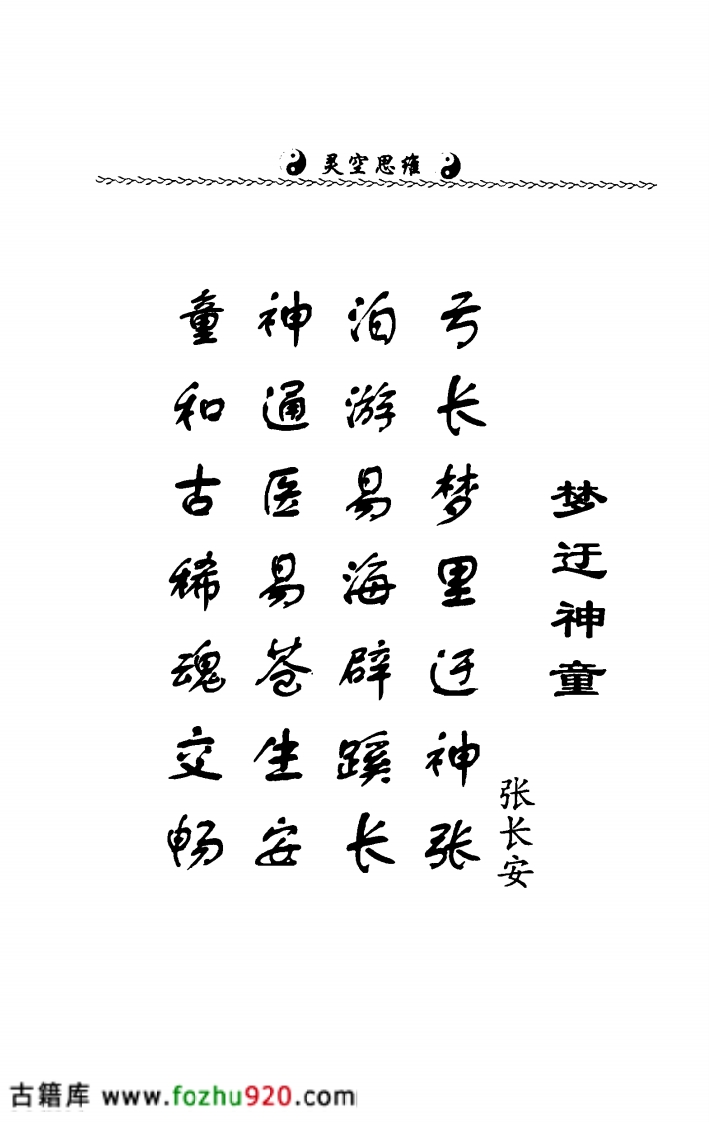 灵空思维
梦迂神童
张长安
弓长梦里迂神张
泊游易海辟蹊长
神通医易苍生安
童和古稀魂交畅
古籍库 www.fozhu920.com